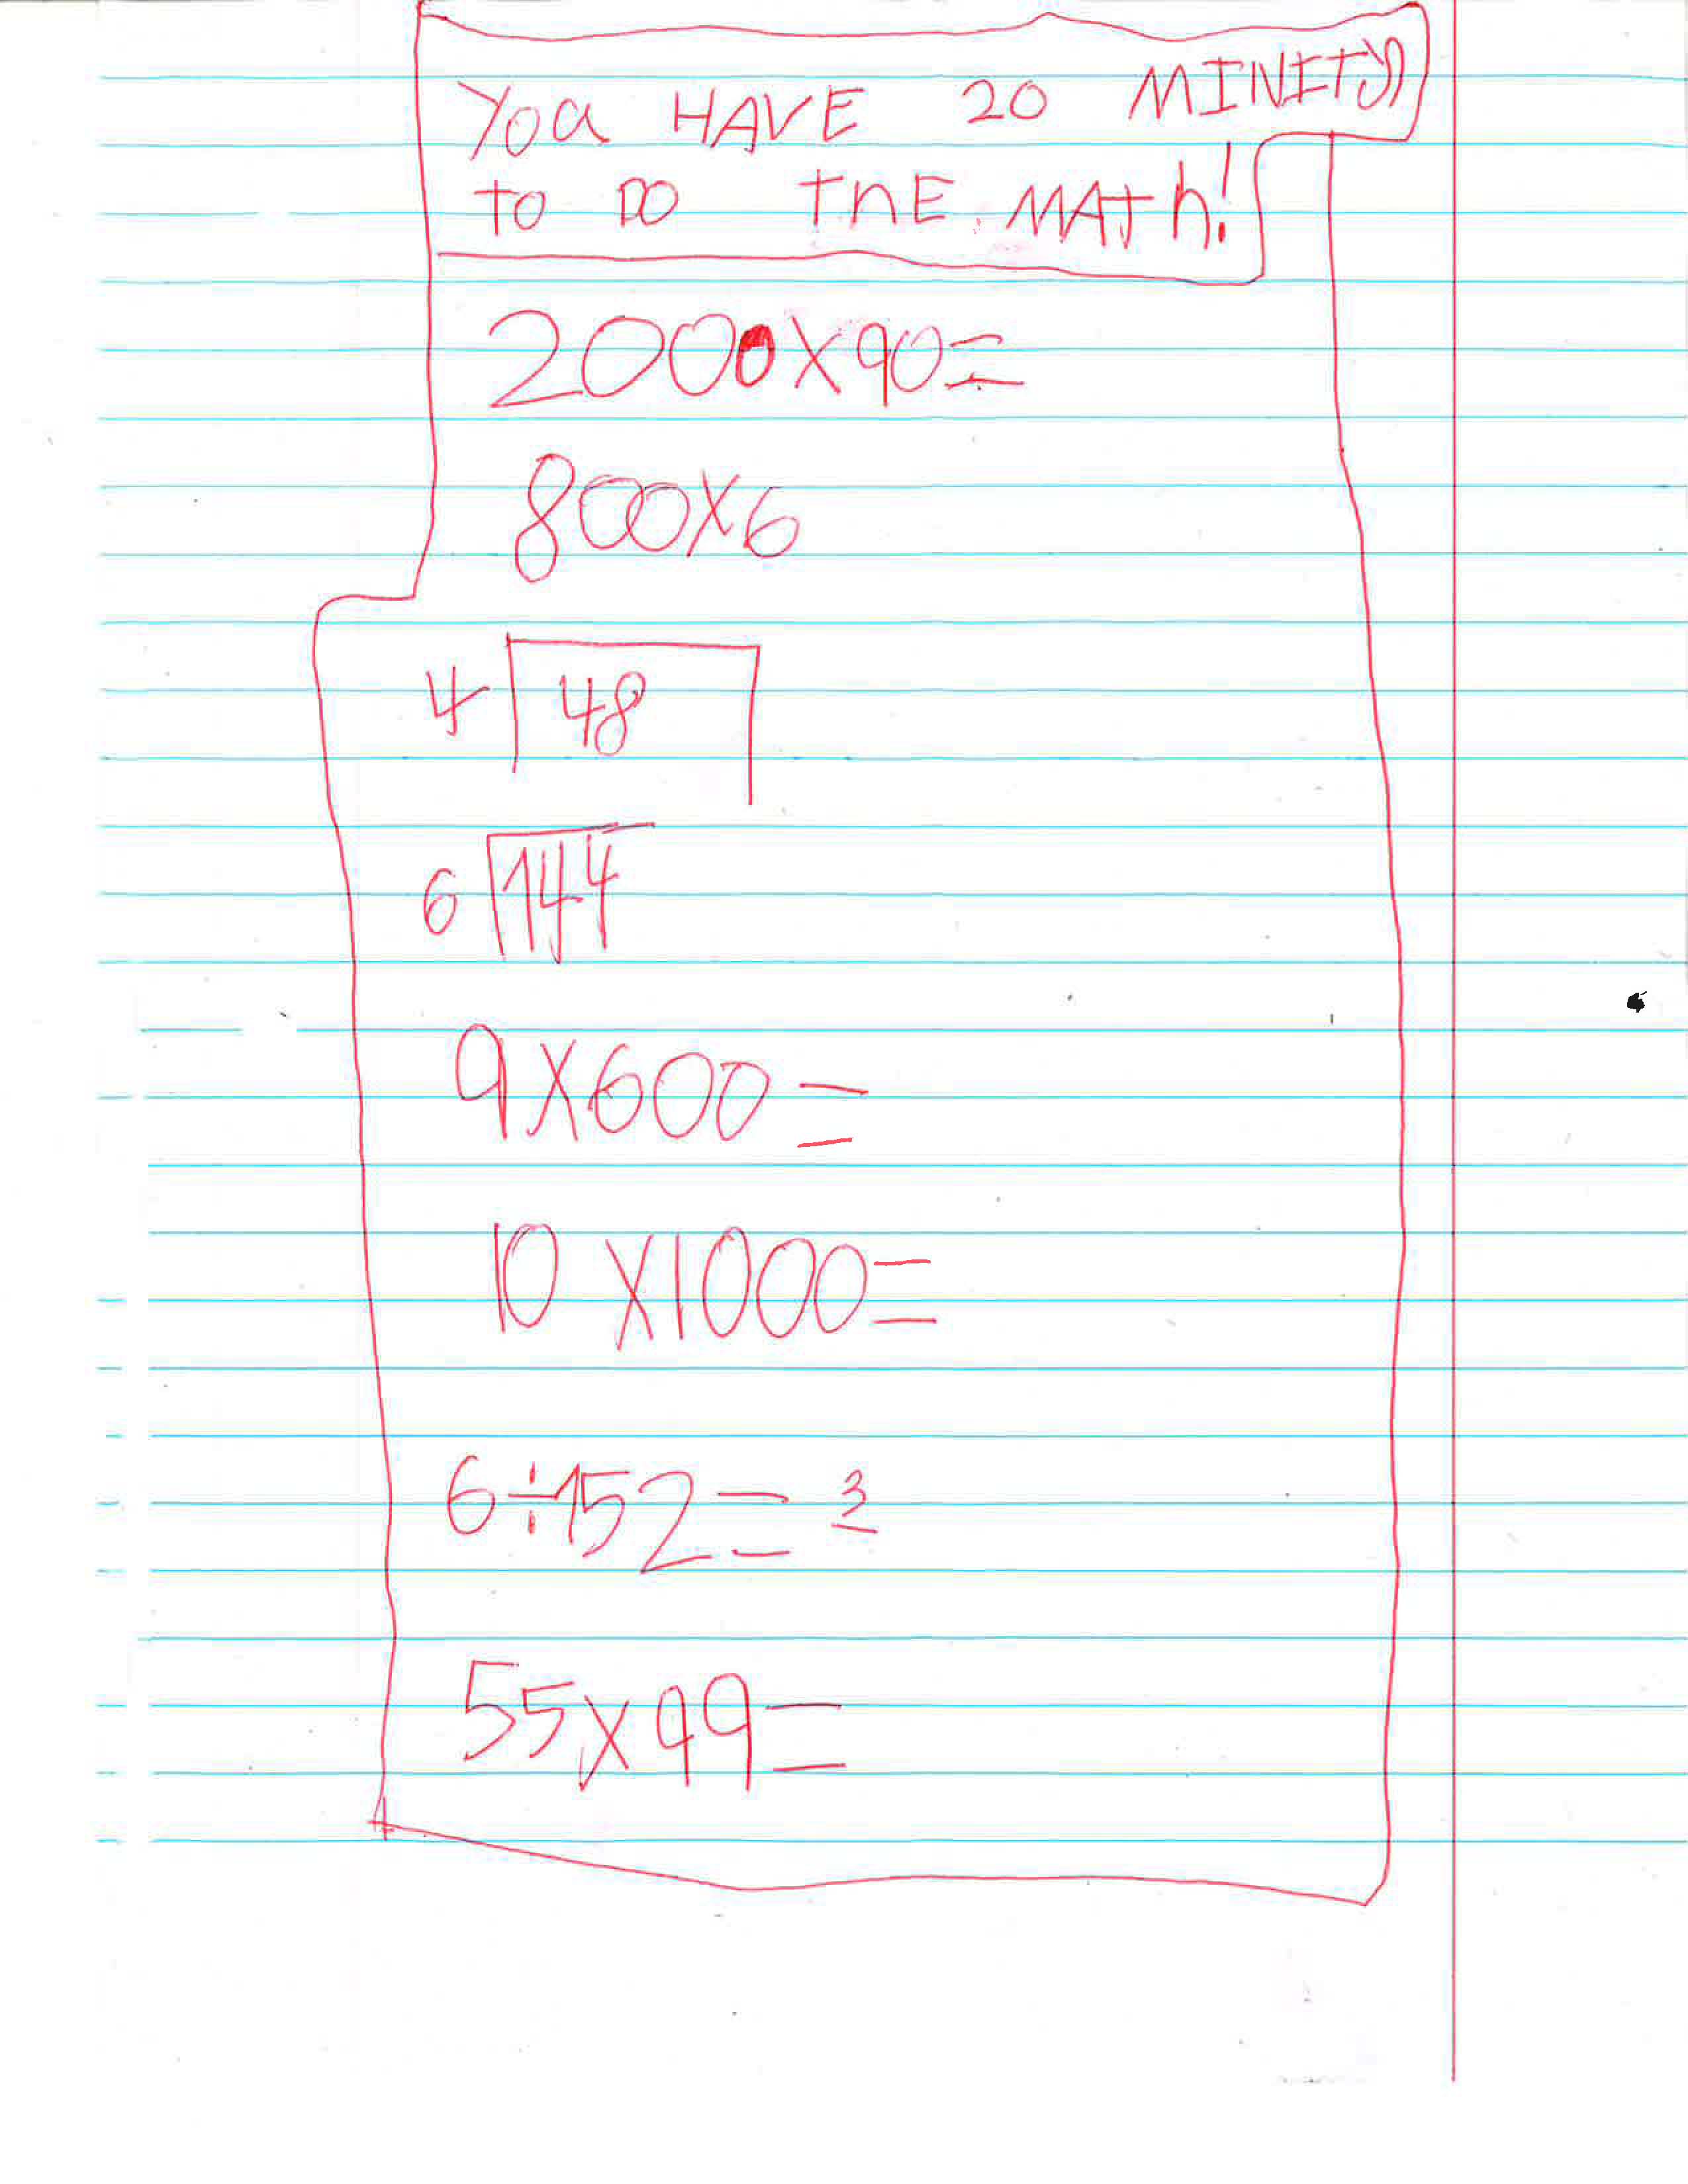 YOU HAVE 20 MINITS
TO DO THE MATH!
2000X90=
800X6
4 48
6 144
9X600=
10 X1000=
6÷152= 3
55X99=